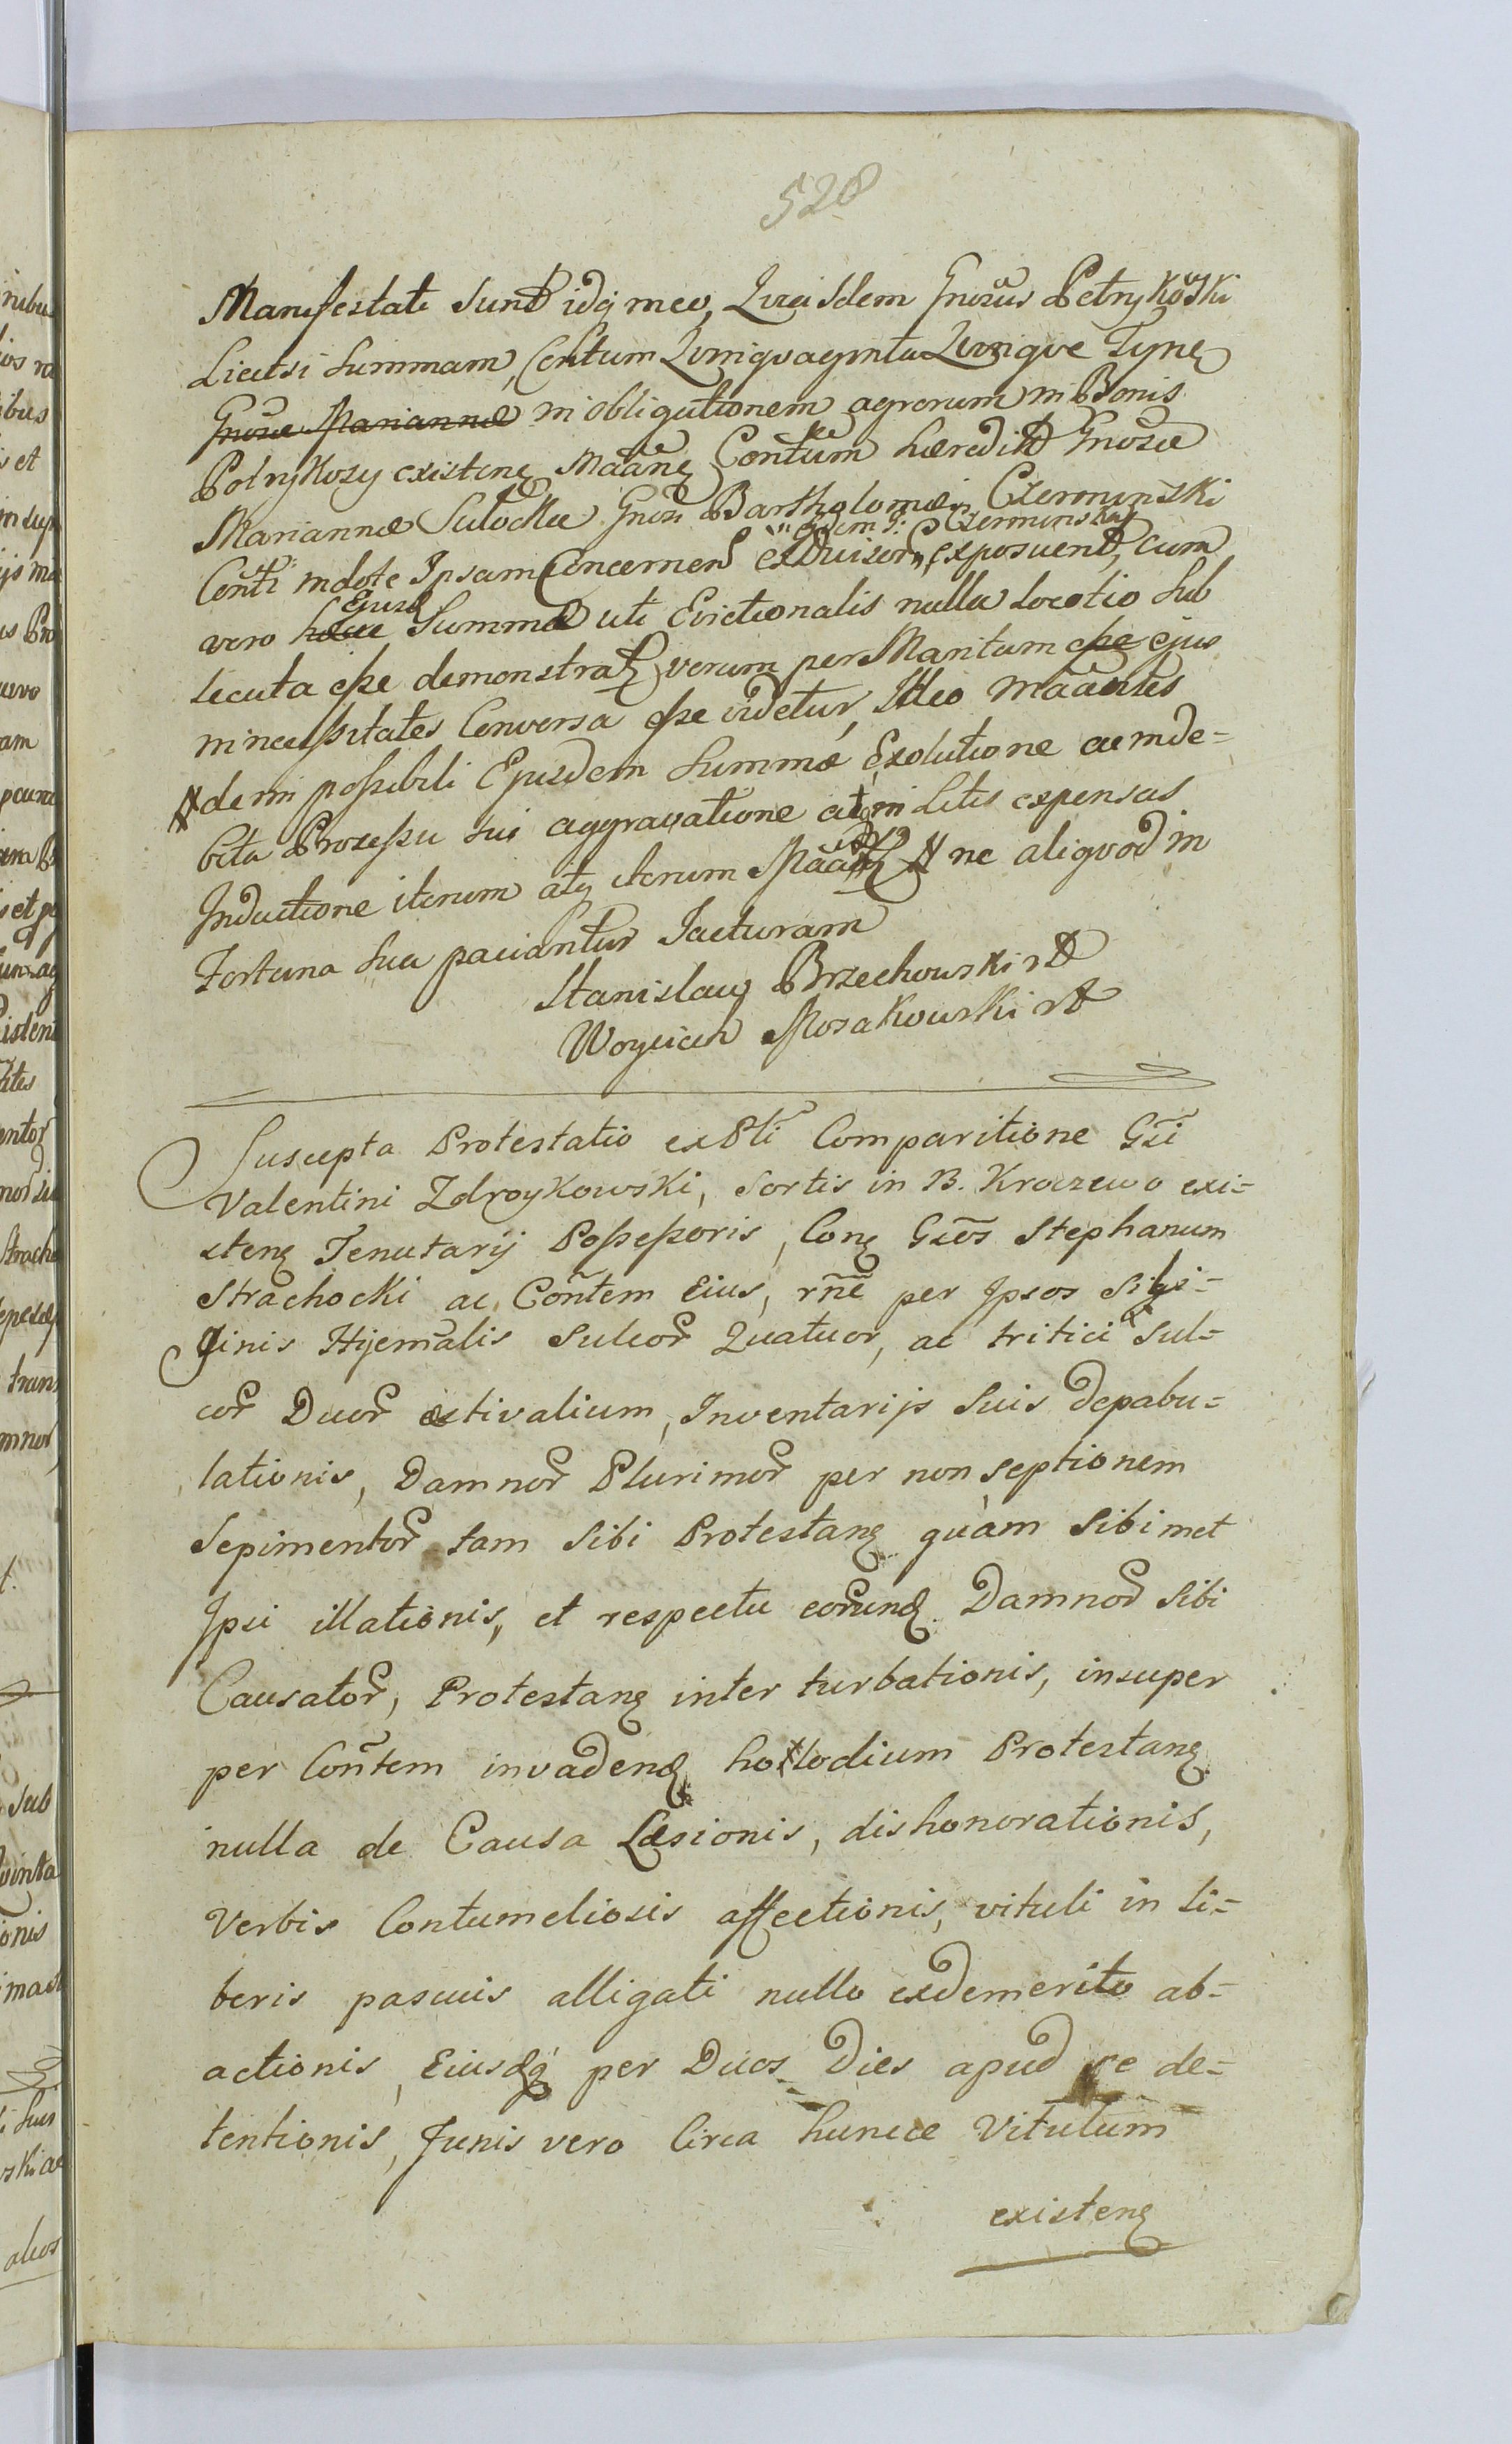 528
Manifestati Sunt idq; in eo, Quia Idem Gnosus Petrykoski
Licet si Summam, Centum Quinquaginta Quinque Tynf
Gnosae Mariannae in obligationem agrorum in Bonis
Potrykozy existen Maãne Contum haeredit Gnosae
Mariannae Sulockae Gnosi Bartholomaei Czerminski
Contĩ in dote Ipsam Concernen ex Duisor eidem G: Czerminskiey exposuerit, cum
vero haec Ejusd Summae uti Evictionalis nulla locatio sub
secuta esse demonstrat, verum per Maritum esse ejus
in necessitates Conversa esse videtur, Ideo Maãntes
de im possibili Ejusdem Summae Exolutione ac inde=
bita Processu sui aggravatione at in Litis expensas
Inductione iterum atq iterum Maãnt ne aliquod in
Fortuna sua paciantur Jacturam
Stanislaw Brzechowski
Woyciech Mosakowski
Suscepta Protestatio ex Pti Comparitione Gsi
Valentini Zdroykowski, Sortis in B. Kraczewo exi=
sten Tenutarij Possessoris, Con Gsos Stephanum
Strachocki ac Contem Eius, rñe per Ipsos Sili=
ginis Hijemalis Sulcor Quatuor, ac tritici Sul=
cor Duor aestivalium, Inventarijs Suis depabu=
lationis, Damnor Plurimor per non septionem
Sepimentor tam Sibi Protestan quàm Sibimet
Ipsi illationis, et respectu eorund Damnor Sibi
Causator, Protestan inter turbationis, insuper
per Contem invaden hollodium Protestan
nulla de Causa Laesionis, dishonorationis,
Verbis Contumeliosis affectionis, vituli in li=
beris pascuis alligati nullo exdemerito ab=
actionis, Eiusdq per Duos Dies apud se de=
tentionis, Funis vero Circa hunce Vitulum
existen